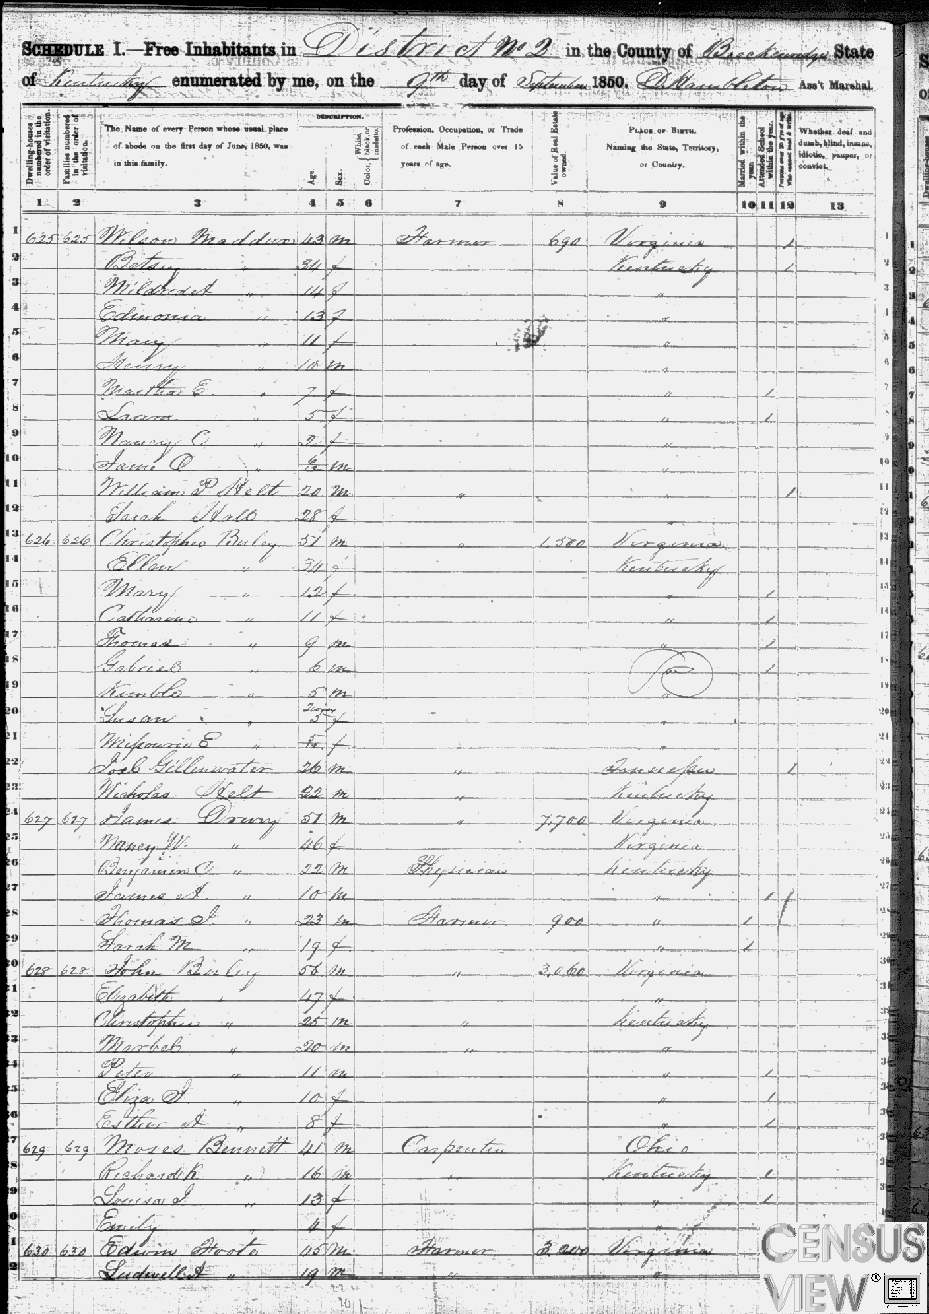 SCHEDULE I.—Free Inhabitants in District No 2 in the County of Breckenridge State
of Kentucky enumerated by me, on the 9th day of September 1850. Ass't Marshal.
DESCRIPTION.
Dwelling-houses numbered in the order of visitation.
Families numbered in the order of visitation.
The Name of every Person whose usual place of abode on the first day of June, 1850, was in this family.
Age.
Sex.
White, black, or mulatto.
Color
Profession, Occupation, or Trade of each Male Person over 15 years of age.
Value of Real Estate owned.
PLACE OF BIRTH. Naming the State, Territory, or Country.
Married within the year.
Attended School within the year.
Persons over 20 y'rs of age who cannot read & write.
Whether deaf and dumb, blind, insane, idiotic, pauper, or convict.
1 2 3 4 5 6 7 8 9 10 11 12 13
1 625 625 Wilson 43 m Farmer 690 Virginia 1 1
2 Betsy " 34 f Kentucky 1 2
3 Mildred A " 14 f " 3
4 Edmonia " 13 f " 4
5 Mary " 11 f " 5
6 Henry " 10 m " 6
7 Martha E. " 7 f " 1 7
8 Laura " 5 f " 1 8
9 Nancy C " 2 f " 9
10 " m " 10
11 William P Helt 20 m " " 1 11
12 Sarah Hall 28 f " 12
13 626 626 51 m " 1,500 Virginia 13
14 Ellen " 34 Kentucky 14
15 Mary " 12 f " 1 15
16 Catharine " 11 f " 1 16
17 Thomas " 9 m " 1 17
18 Gabriel " 6 m " 1 18
19 Kimble " 5 m " 19
20 Susan " f " 20
21 Missouri E " f " 21
22 Joel Gillenwater 26 m " Tennessee 1 22
23 Nicholas Helt 22 m " Kentucky 23
24 627 627 James Drury 51 m " 7,700 Virginia 24
25 Nancy W. " 46 f Virginia 25
26 Benjamin C. " 22 m Physician Kentucky 26
27 James A. " 10 m " 1 27
28 Thomas J " 23 m Farmer 900 " 1 28
29 Sarah M " 19 f " 1 29
30 628 628 John m " 3,060 Virginia
31 Elizabeth " 47 f "
32 Christopher " 25 m " Kentucky
33 " 20 m " "
34 Peter " 11 m " 1
35 Eliza J " 10 f " 1
36 Esther A " 8 f " 1
37 629 629 Moses Bennett 41 m Carpenter Ohio
38 Richard R " 16 m " Kentucky 1
39 Louisa J " 13 f " 1
40 Emily " 4 f "
41 630 630 Edwin Foote 45 m Farmer 3,200 Virginia
42 Ludwell A " 19 m " "
CENSUS
VIEW®